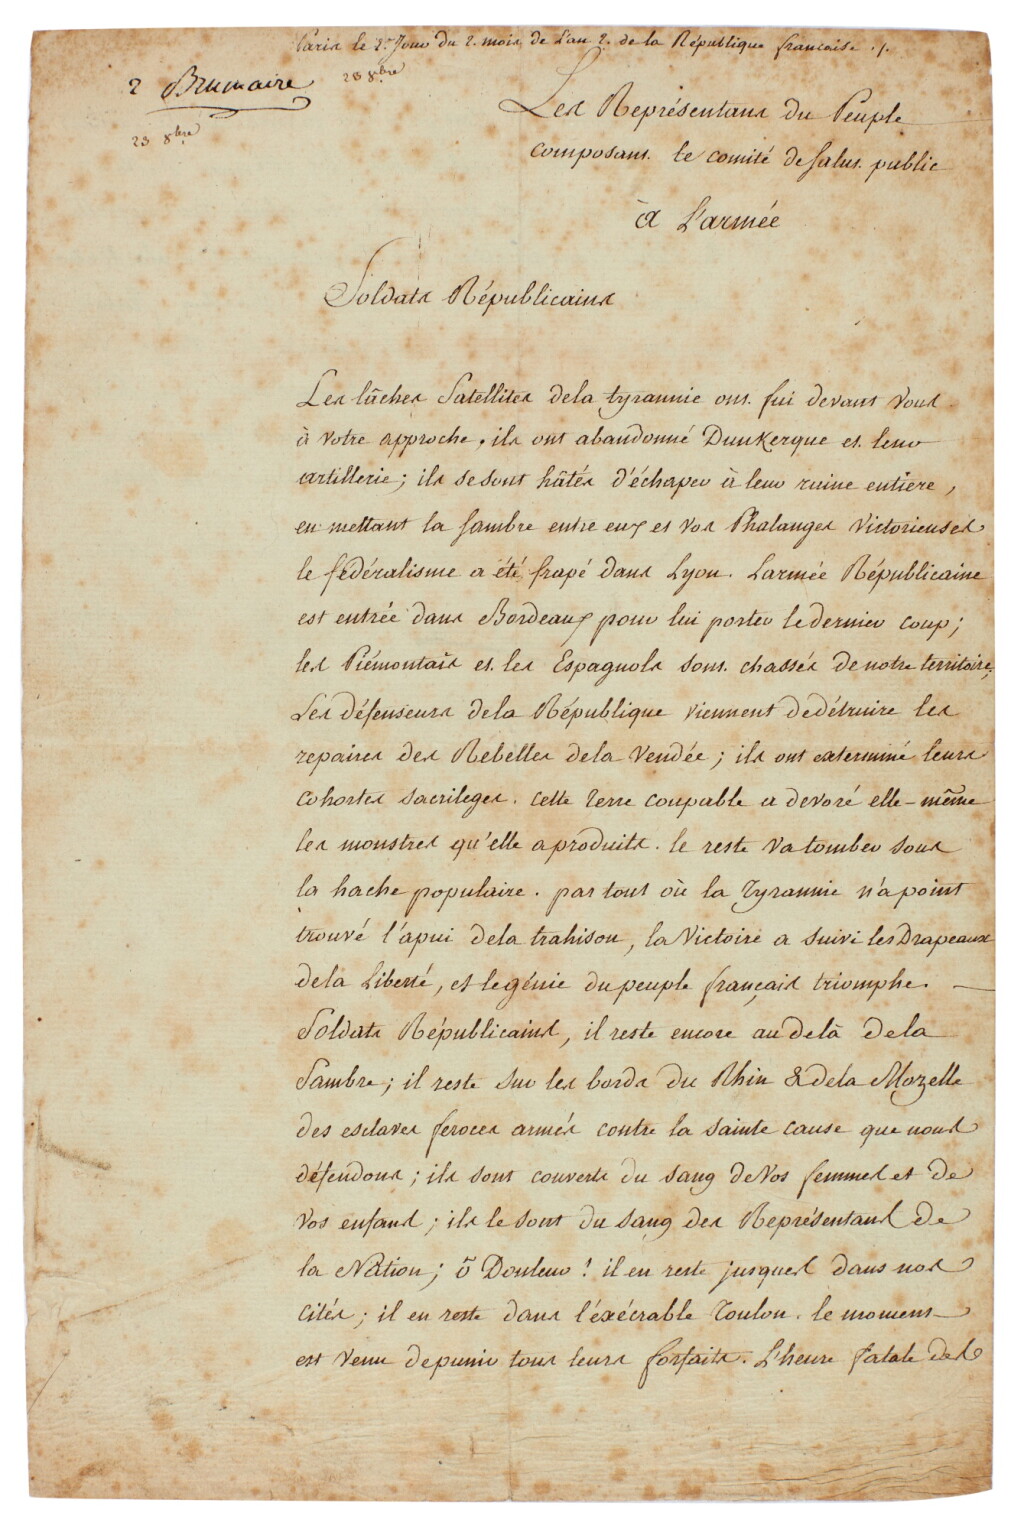 Paris le 2.e Jour du 2. mois de l'an 2. de la République française ./.
2 Brumaire
23 8bre
23 8bre
Les Représentans du Peuple
composant le comité de Salut public
à L'armée
Soldats Républicains
Les lâches Satellites dela tyrannie ont fui devant vous
à votre approche, ils ont abandonné Dunkerque et leur
artillerie; ils se sont hâtés d'échaper à leur ruine entière,
en mettant la Sambre entre eux et vos Phalanges victorieuses
le fédéralisme a été frapé dans Lyon. L'armée Républicaine
est entrée dans Bordeaux pour lui porter le dernier coup;
les Piémontais et les Espagnols sont chassés de notre territoire,
Les défenseurs dela République viennent de détruire les
repaires des Rebelles dela vendée; ils ont exterminé leurs
cohortes sacrileges. cette terre coupable a devoré elle-même
les monstres qu'elle a produits. le reste va tomber sous
la hache populaire. par tout où la Tyrannie n'a point
trouvé l'apui dela trahison, la victoire a suivi les Drapeaux
dela Liberté, et le génie du peuple français triomphe.
Soldats Républicains, il reste encore au delà dela
Sambre; il reste sur les bords du Rhin & dela Mozelle
des esclaves feroces armés contre la sainte cause que nous
défendons; ils sont couverts du sang de vos femmes et de
vos enfans; ils le sont du sang des Représentans de
la Nation; ô Douleur! il en reste jusques dans nos
cités; il en reste dans l'éxécrable Toulon. le moment
est venu de punir tous leurs forfaits. L'heure fatale des